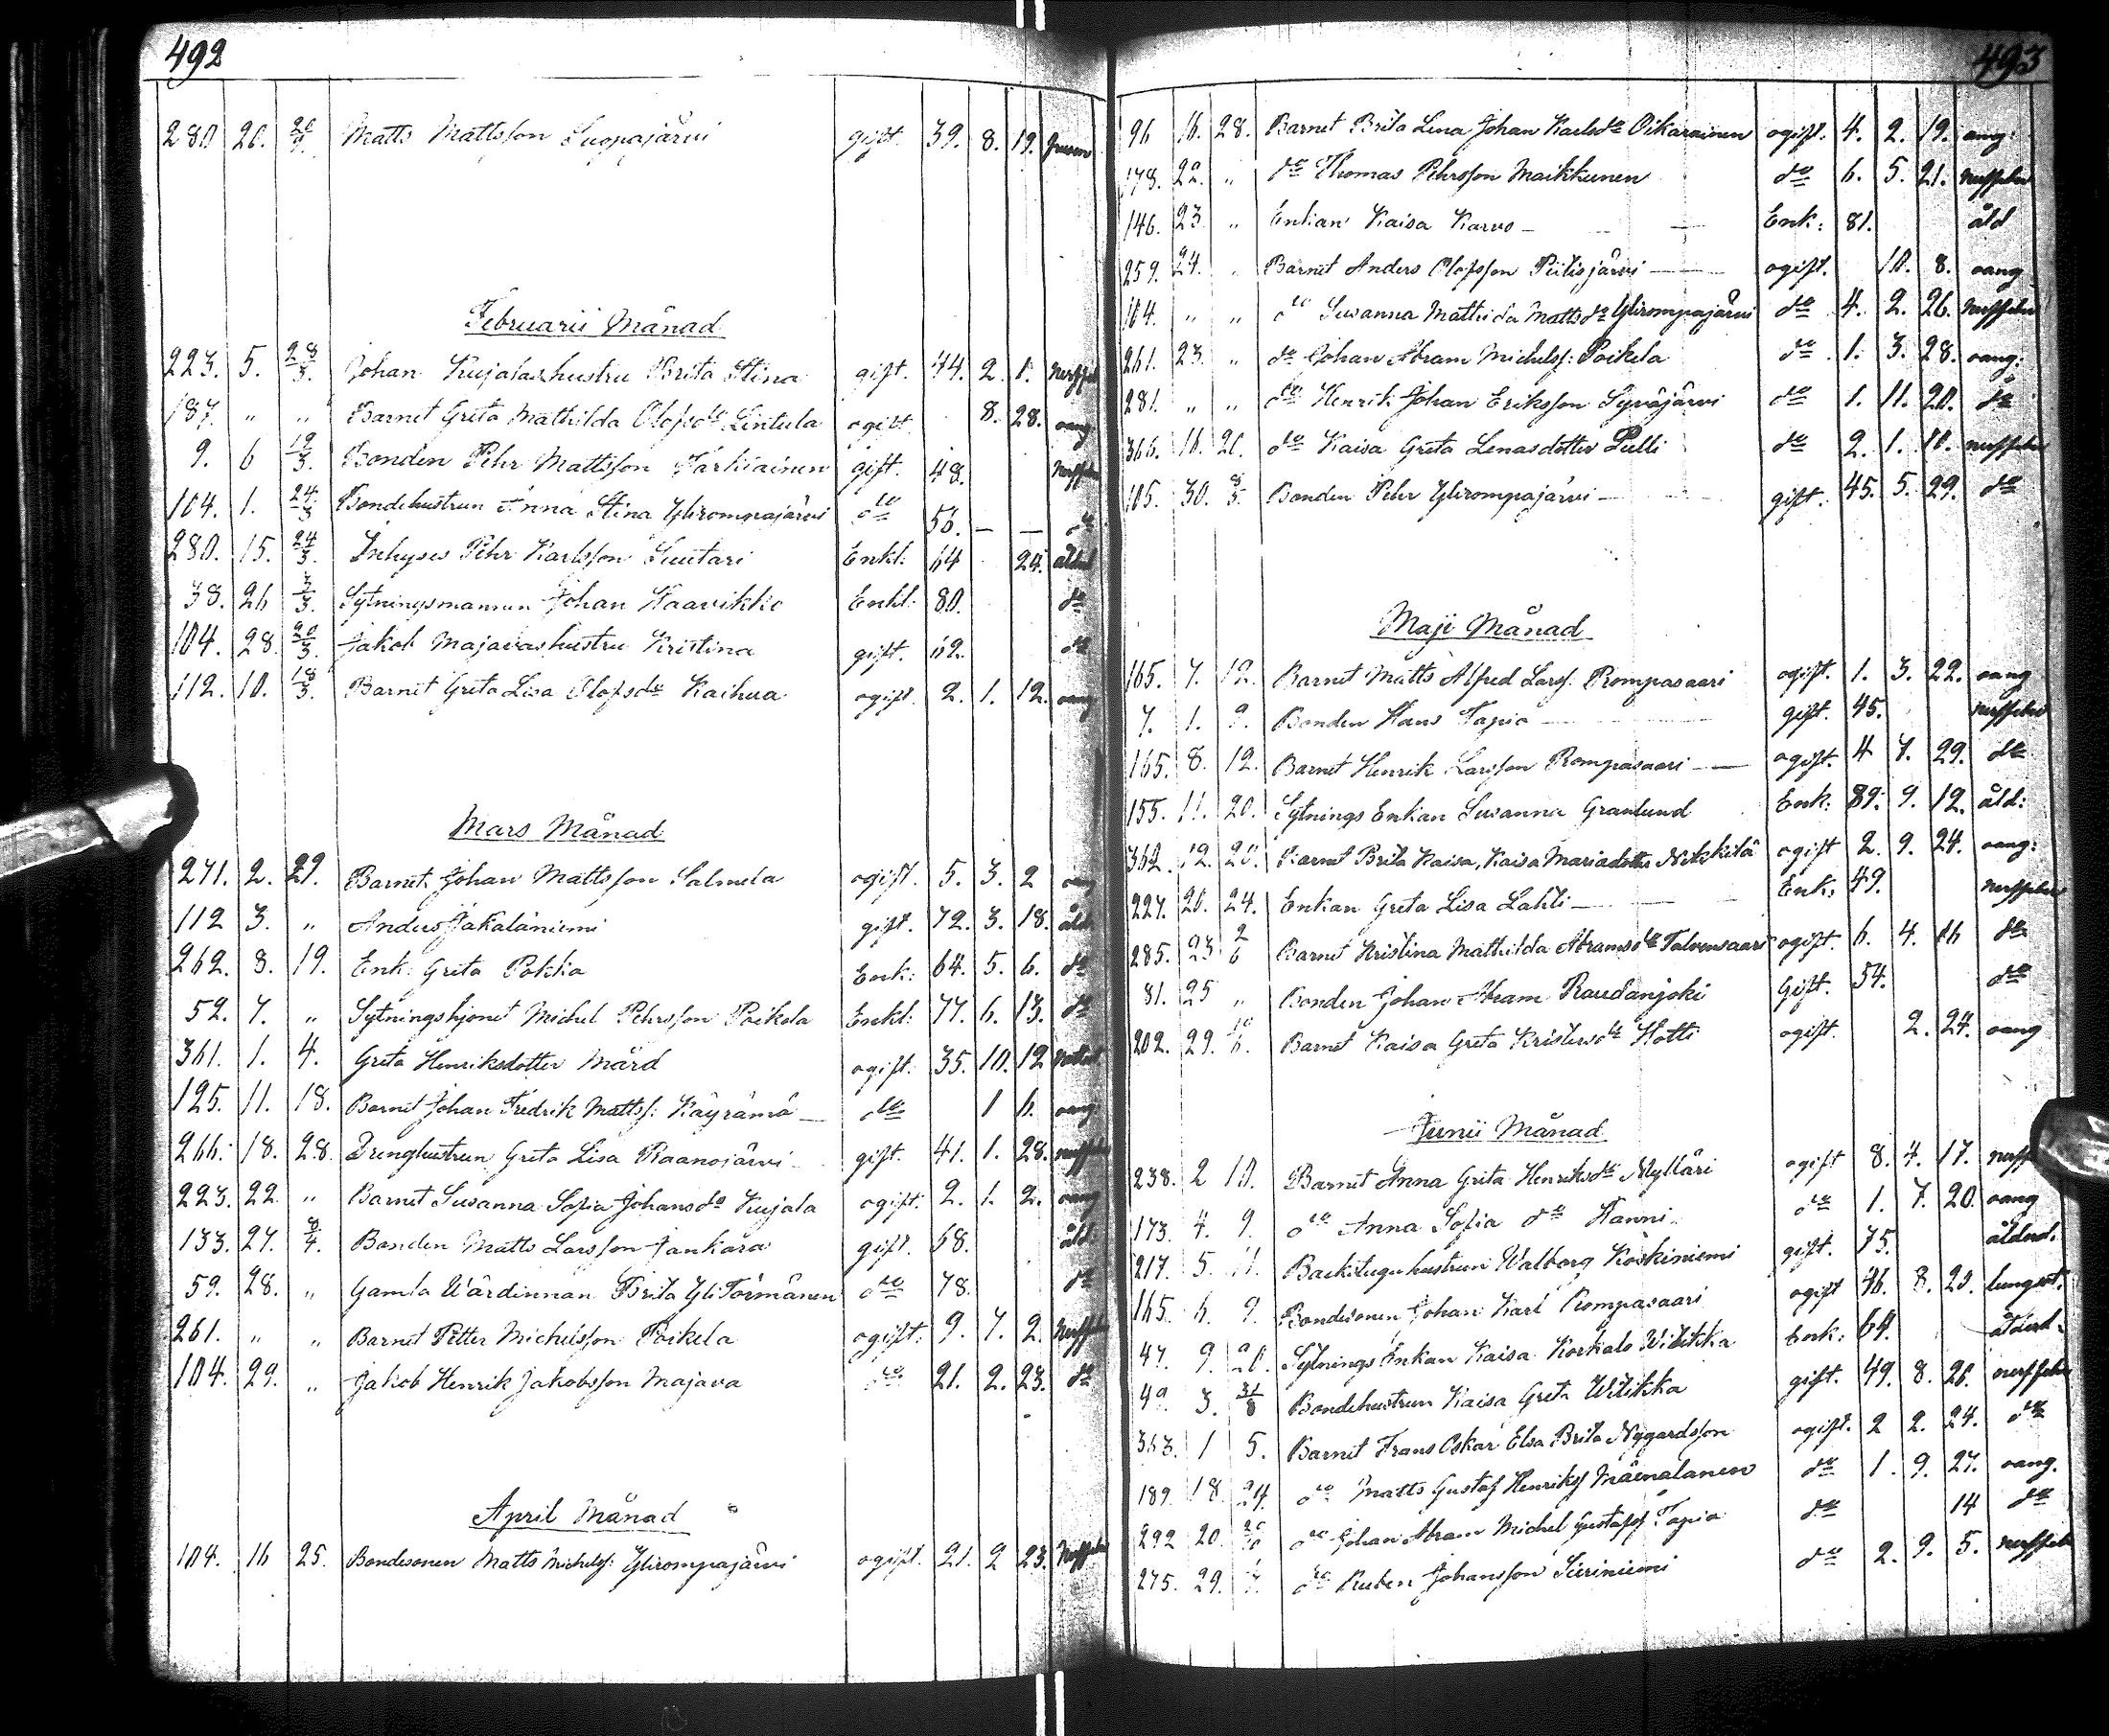 492
280 20. 20/9. Matts Mattsson Suopajärvi gift. 39. 8. 19.
Februarii Månad
223. 5. 28/3. Johan Kujalas hustru Brita Stina gift. 44. 2. 1. Nerffeb
187. " " Barnet Greta Mathilda Olofsdr Lintula ogift. 8. 28. oang
9. 6 19/3. Bonden Pehr Mattsson Tarkiainen gift. 48. Nerffeb
104. 1. 24/3 Bondehustrun Anna Stina Ylirompajärvi do 56. — — do
280. 15. 24/3. Inhyses Pehr Karlsson Suutari Enkl: 64 24. åld
38. 26 3/3. Sytningsmannen Johan Kaavikko Enkl: 80. do
104. 28. 20/3. Jakob Majavas hustru Kristina gift. 62. do
112. 10. 18/3. Barnet Greta Lisa Olofsdr Kaihua ogift. 2. 1. 12. oang
Mars Månad
271. 2. 29. Barnet Johan Mattsson Salmela ogift. 5. 3. 2 oang
112 3. " Anders Jakalaniemi gift. 72. 3. 18. åld
262. 8. 19. Enk: Greta Pokka Enk: 64. 5. 6. do
52. 7. " Sytningshjonet Michel Pehrsson Poikela Enkl: 77. 6. 13. do
361. 1. 4. Greta Henriksdotter Mård ogift. 35. 10. 12
125. 11. 18. Barnet Johan Fredrik Mattss: Käyrämö — do 1 6. oang:
266. 18. 28. Drenghustrun Greta Lisa Raanojärvi gift. 41. 1. 28. nerffeb
223. 22. " Barnet Susanna Sofia Johansdr Kujala ogift. 2. 1. 2. oang
133. 27. 8/4. Bonden Matts Larsson Jankara gift. 68. åld:
59. 28. " Gamla Wärdinnan Brita Yli Törmänen do 78. do
261. " " Barnet Petter Michelsson Poikela ogift. 9. 7. 2. Nerffeb
104. 29. " Jakob Henrik Jakobsson Majava do 21. 2. 23. do
April Månad
104. 16 25. Bondesonen Matts Michelss: Ylirompajärvi ogift. 21. 2 23. Nerffeb
493
96 16. 28. Barnet Brita Lena Johan Karlsdr Oikarainen ogift. 4. 2. 19. oang:
178. 22. " do Thomas Pehrsson Maikkunen do 6. 5. 21. Nerffeb
146. 23. " Enkan Kaisa Karvo — — Enk: 81. åld
259. 24. " Barnet Anders Olofsson Piitisjärvi — ogift. 10. 8. oang
104. " " do Susanna Mathilda Mattsdr Ylirompajärvi do 4. 2. 26. Nerffeb
261. 23. " do Johan Abram Michelss: Poikela do 1. 3. 28. oang:
281. " " do Henrik Johan Eriksson Syväjärvi do 1. 11. 20. do
366. 16. 26. do Kaisa Greta Lenasdotter Pulli do 2. 1. 10. nerffeb
105. 30. 8/5. Bonden Pehr Ylirompajärvi — gift. 45. 5. 29. do
Maji Månad
165. 7. 12. Barnet Matts Alfred Larss: Rompasaari ogift. 1. 3. 22. oang
7. 1. 9. Bonden Hans Tapio — gift. 45. nerffeber
165. 8. 12. Barnet Henrik Larsson Rompasaari — ogift. 4 7. 29. do
155. 11. 20. Sytnings Enkan Susanna Granlund Enk: 89. 9. 12. åld:
362. 12. 20. Barnet Brita Kaisa, Kaisa Mariadotter Nikkilä ogift 2. 9. 24. oang:
227. 20. 24. Enkan Greta Lisa Lahti — Enk: 49. nerffeber
285. 23 2/6 Barnet Kristina Mathilda Abramsdr Talvensaari ogift. 6. 4. 16 do
81. 25 " Bonden Johan Abram Raudanjoki Gift. 54. do
202. 29. 10/6. Barnet Kaisa Greta Kristersdr Hotti ogift. 2. 24. oang
Junii Månad
238. 2 10. Barnet Anna Greta Henriksdr Mylläri ogift 8. 4. 17.
173. 4. 9. do Anna Sofia do Hanni do 1. 7. 20. oang
217. 5. 11. Backstuguhustrun Walborg Koskiniemi gift. 75. ålderd.
165. 6. 9. Bondesonen Johan Karl Rompasaari ogift 46. 8. 23. lungsot.
47. 9. 20. Sytnings Enkan Kaisa Korkalo Witikka Enk: 64. ålderd.
49. 3. 31/8 Bondehustrun Kaisa Greta Witikka gift. 49. 8. 26. nerffeber
363. 1 5. Barnet Frans Oskar Elsa Brita Nygårdsson ogift. 2 2. 24. do
189. 18. 24. do Matts Gustaf Henrikss Mäenalanen do 1. 9. 27. oang.
292 20. do Johan Abram Michel Gustafss Tapio do 14 do
275. 29. do Ruben Johansson Sieriniemi do 2. 9. 5. nerffeb